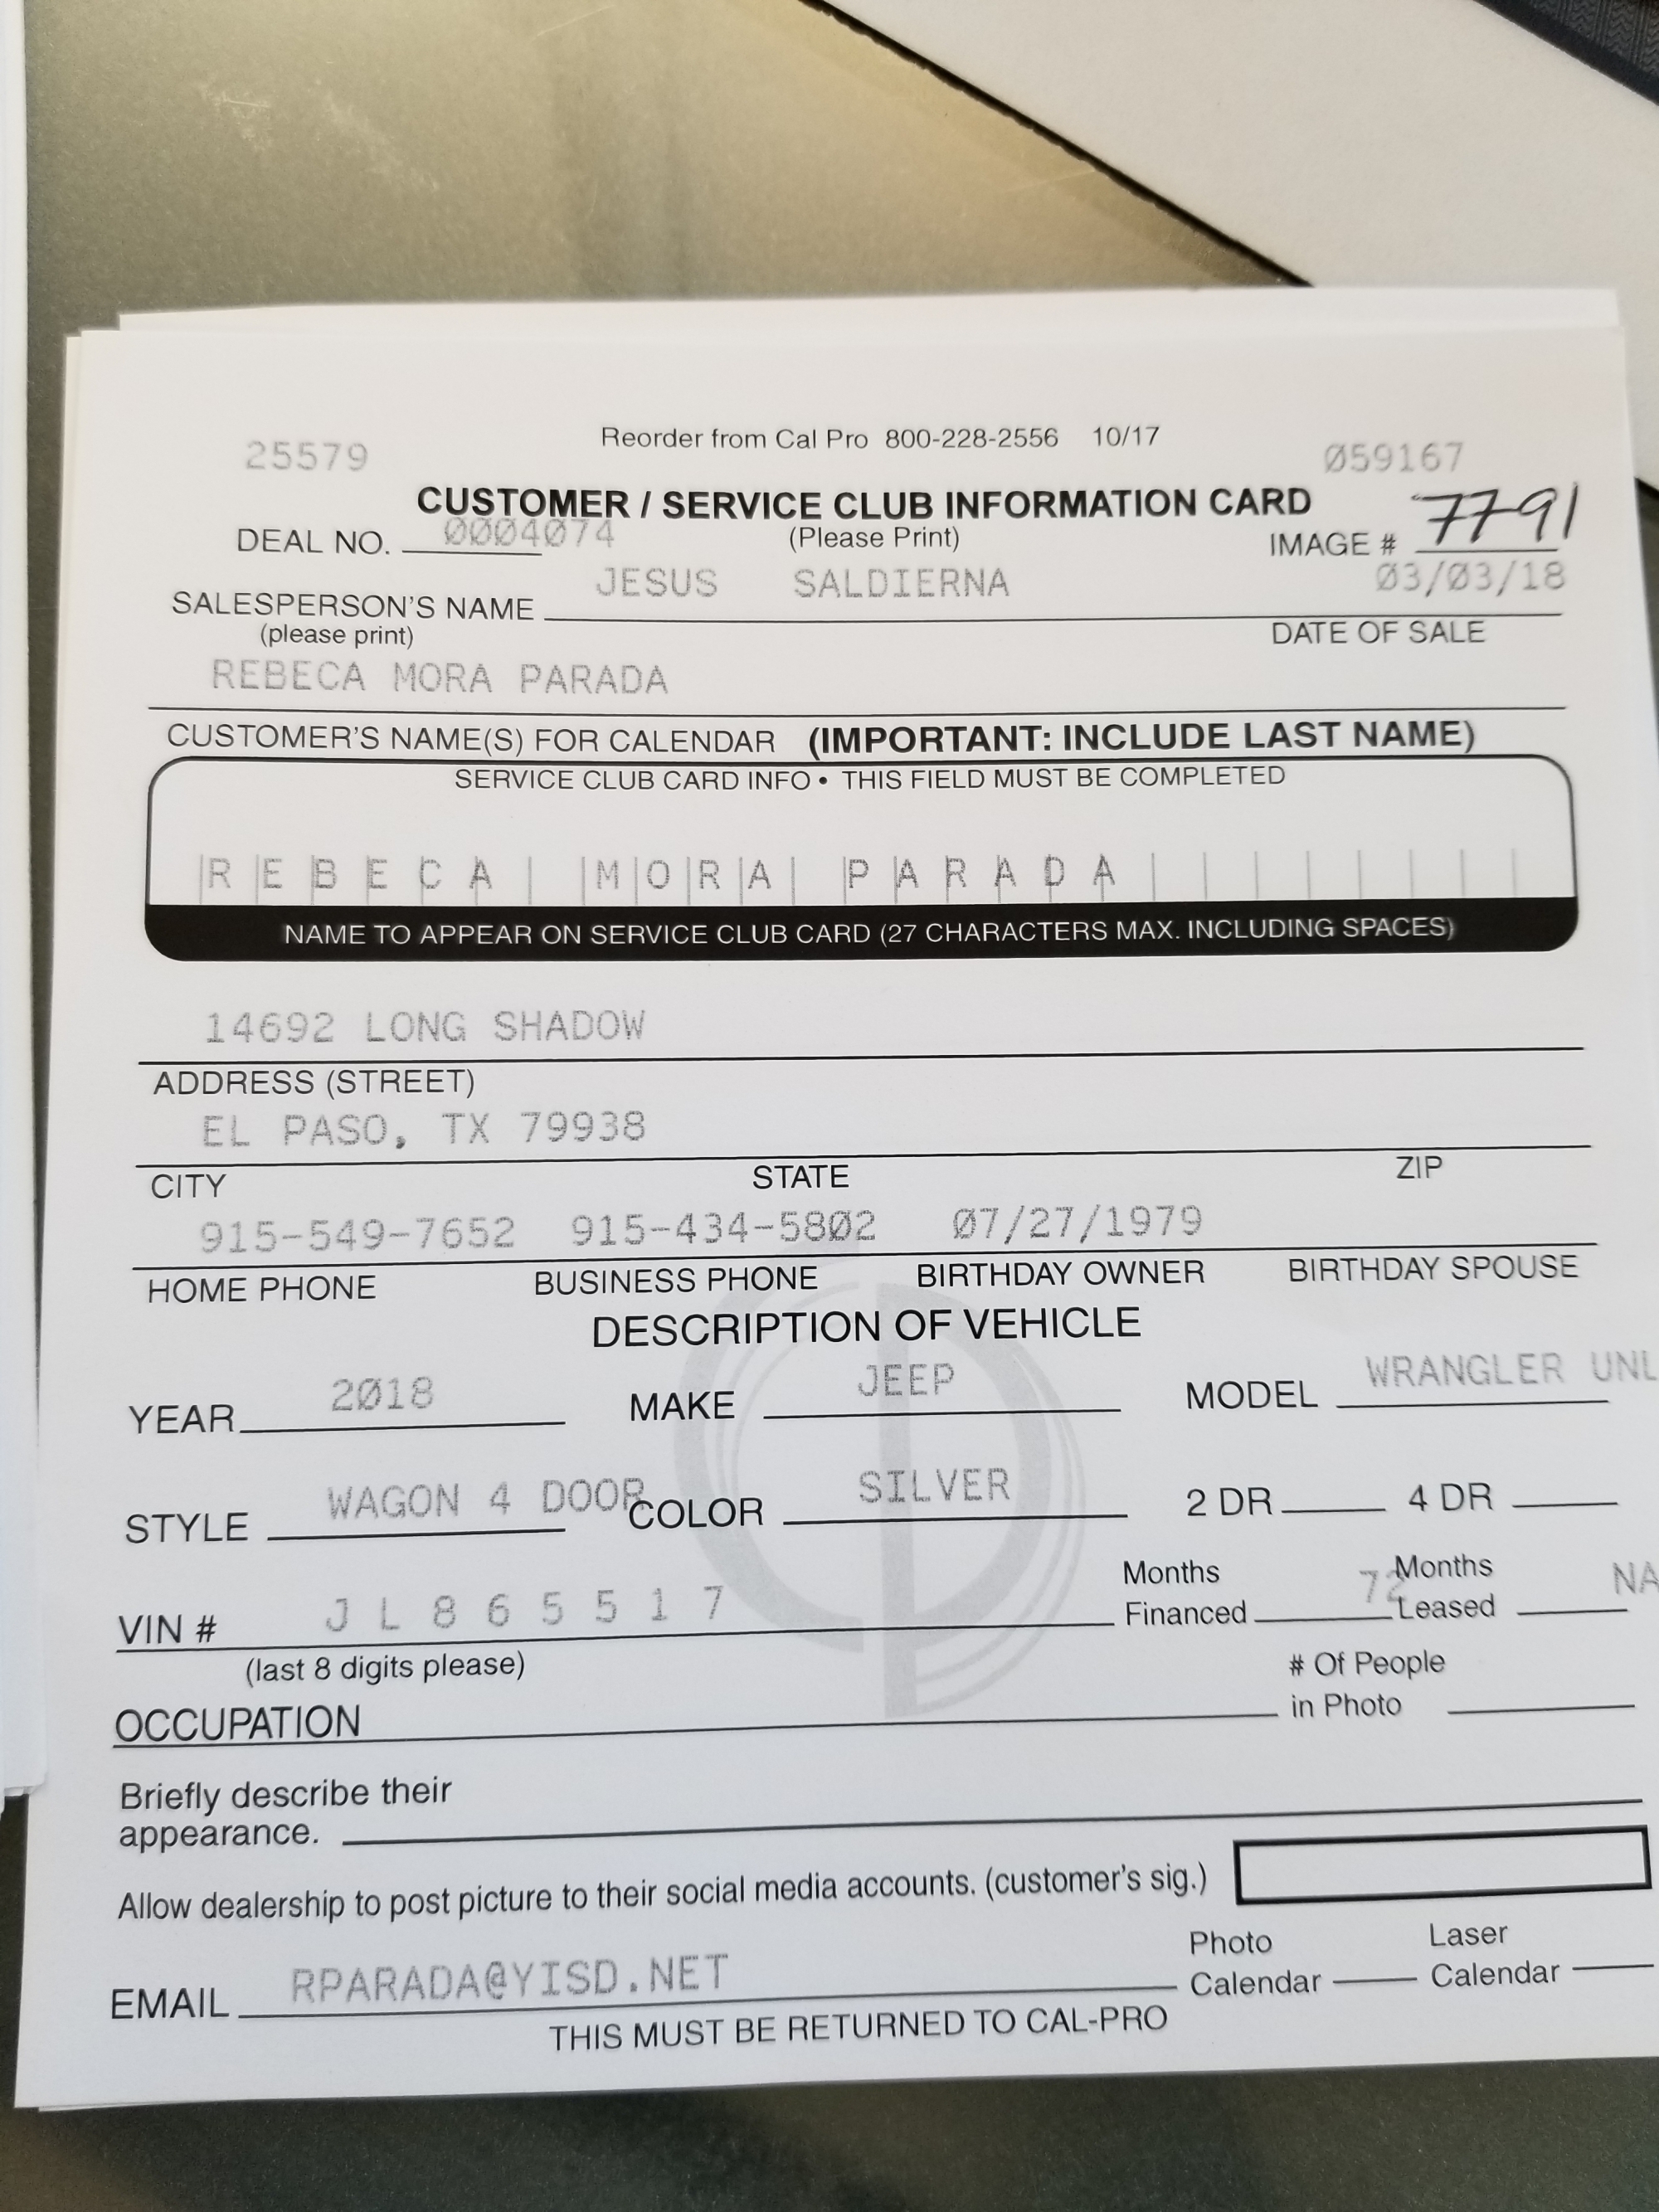 Reorder from Cal Pro 800-228-2556 10/17
25579 Ø59167
CUSTOMER / SERVICE CLUB INFORMATION CARD
DEAL NO. ØØØ4Ø74 (Please Print) IMAGE # 7791
SALESPERSON'S NAME JESUS SALDIERNA Ø3/Ø3/18
(please print) DATE OF SALE
REBECA MORA PARADA
CUSTOMER'S NAME(S) FOR CALENDAR (IMPORTANT: INCLUDE LAST NAME)
SERVICE CLUB CARD INFO • THIS FIELD MUST BE COMPLETED
REBECA MORA PARADA
NAME TO APPEAR ON SERVICE CLUB CARD (27 CHARACTERS MAX. INCLUDING SPACES)
14692 LONG SHADOW
ADDRESS (STREET)
EL PASO, TX 79938
CITY STATE ZIP
915-549-7652 915-434-58Ø2 Ø7/27/1979
HOME PHONE BUSINESS PHONE BIRTHDAY OWNER BIRTHDAY SPOUSE
DESCRIPTION OF VEHICLE
YEAR 2Ø18 MAKE JEEP MODEL WRANGLER UNL
STYLE WAGON 4 DOOR COLOR SILVER 2 DR 4 DR
VIN # J L 8 6 5 5 1 7 Months Financed 72 Months Leased NA
(last 8 digits please)
OCCUPATION # Of People in Photo
Briefly describe their
appearance.
Allow dealership to post picture to their social media accounts. (customer's sig.)
EMAIL RPARADA@YISD.NET Photo Calendar Laser Calendar
THIS MUST BE RETURNED TO CAL-PRO